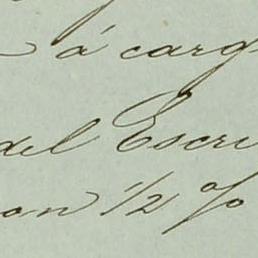 á carg
del Escri
on 1/2 %